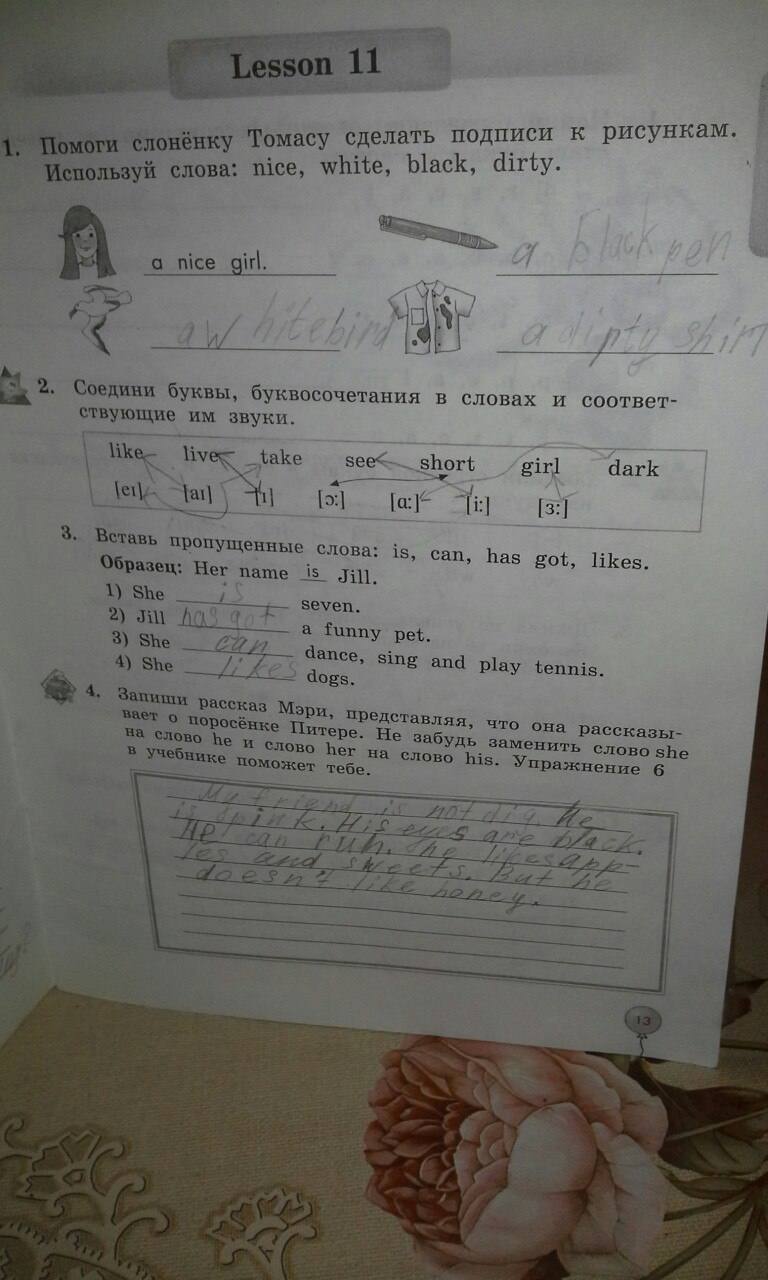 Lesson 11
1. Помоги слонёнку Томасу сделать подписи к рисункам.
Используй слова: nice, white, black, dirty.
a nice girl. a black pen
a white bird a dirty shirt
2. Соедини буквы, буквосочетания в словах и соответ-
ствующие им звуки.
like live take see short girl dark
[eɪ] [aɪ] [ɪ] [ɔ:] [ɑ:] [i:] [ɜ:]
3. Вставь пропущенные слова: is, can, has got, likes.
Образец: Her name is Jill.
1) She is seven.
2) Jill has got a funny pet.
3) She can dance, sing and play tennis.
4) She likes dogs.
4. Запиши рассказ Мэри, представляя, что она рассказы-
вает о поросёнке Питере. Не забудь заменить слово she
на слово he и слово her на слово his. Упражнение 6
в учебнике поможет тебе.
My friend is not dig. He
is pink. His eyes are black.
He can run. he likes app-
les and sweets. But he
doesn't like honey.
13